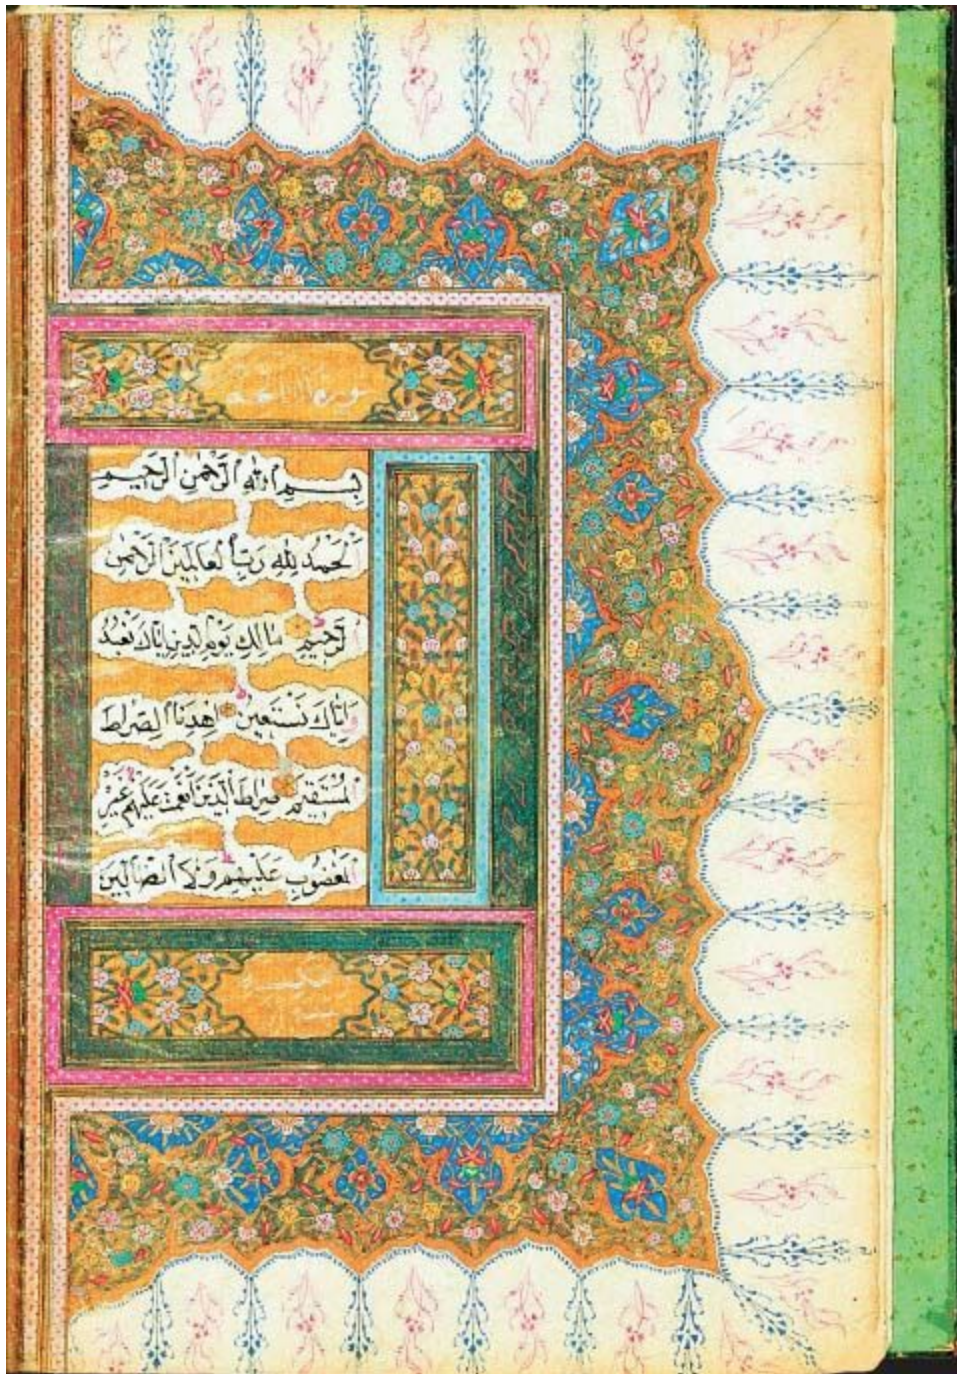 سورة الفاتحة
بِسْمِ اللّٰهِ الرَّحْمٰنِ الرَّحِيمِ
اَلْحَمْدُ لِلّٰهِ رَبِّ الْعَالَمِينَ الرَّحْمٰنِ
الرَّحِيمِ مَالِكِ يَوْمِ الدِّينِ اِيَّاكَ نَعْبُدُ
وَاِيَّاكَ نَسْتَعِينُ اِهْدِنَا الصِّرَاطَ
الْمُسْتَقِيمَ صِرَاطَ الَّذِينَ اَنْعَمْتَ عَلَيْهِمْ غَيْرِ
الْمَغْضُوبِ عَلَيْهِمْ وَلَا الضَّالِّينَ